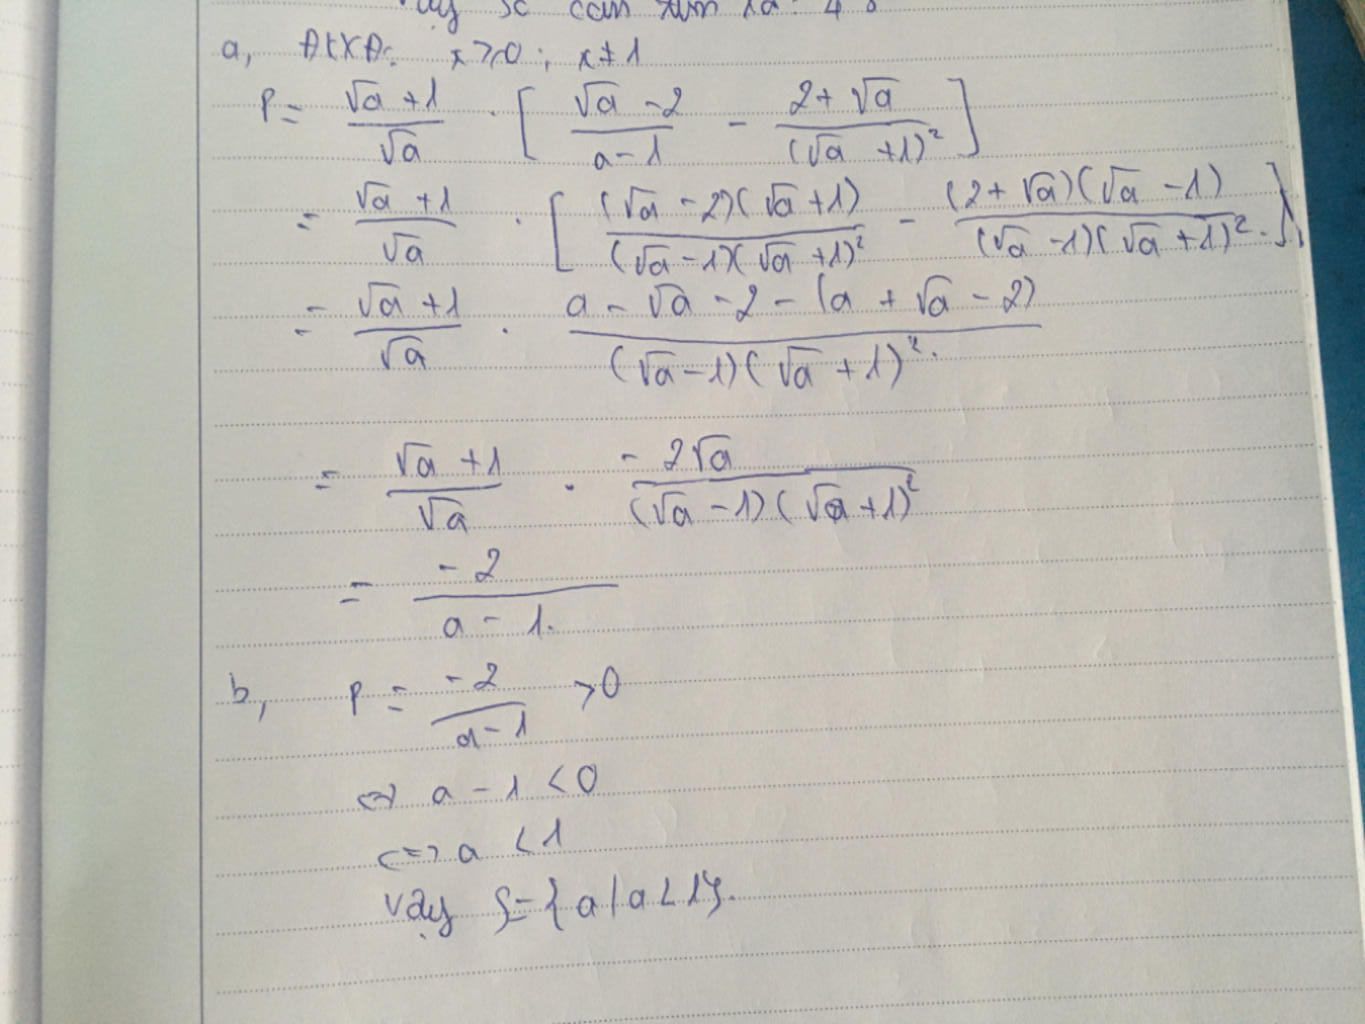 a, ĐKXĐ: x ≥ 0 ; x ≠ 1
P = (√a + 1)/√a . [ (√a - 2)/(a - 1) - (2 + √a)/(√a + 1)² ]
= (√a + 1)/√a . [ (√a - 2)(√a + 1)/((√a - 1)(√a + 1)²) - (2 + √a)(√a - 1)/((√a - 1)(√a + 1)².) ]
= (√a + 1)/√a . (a - √a - 2 - (a + √a - 2))/((√a - 1)(√a + 1)².)
= (√a + 1)/√a . (-2√a)/((√a - 1)(√a + 1)²)
= -2/(a - 1.)
b, P = -2/(a - 1) > 0
<=> a - 1 < 0
<=> a < 1
Vậy S = { a / a < 1 }.